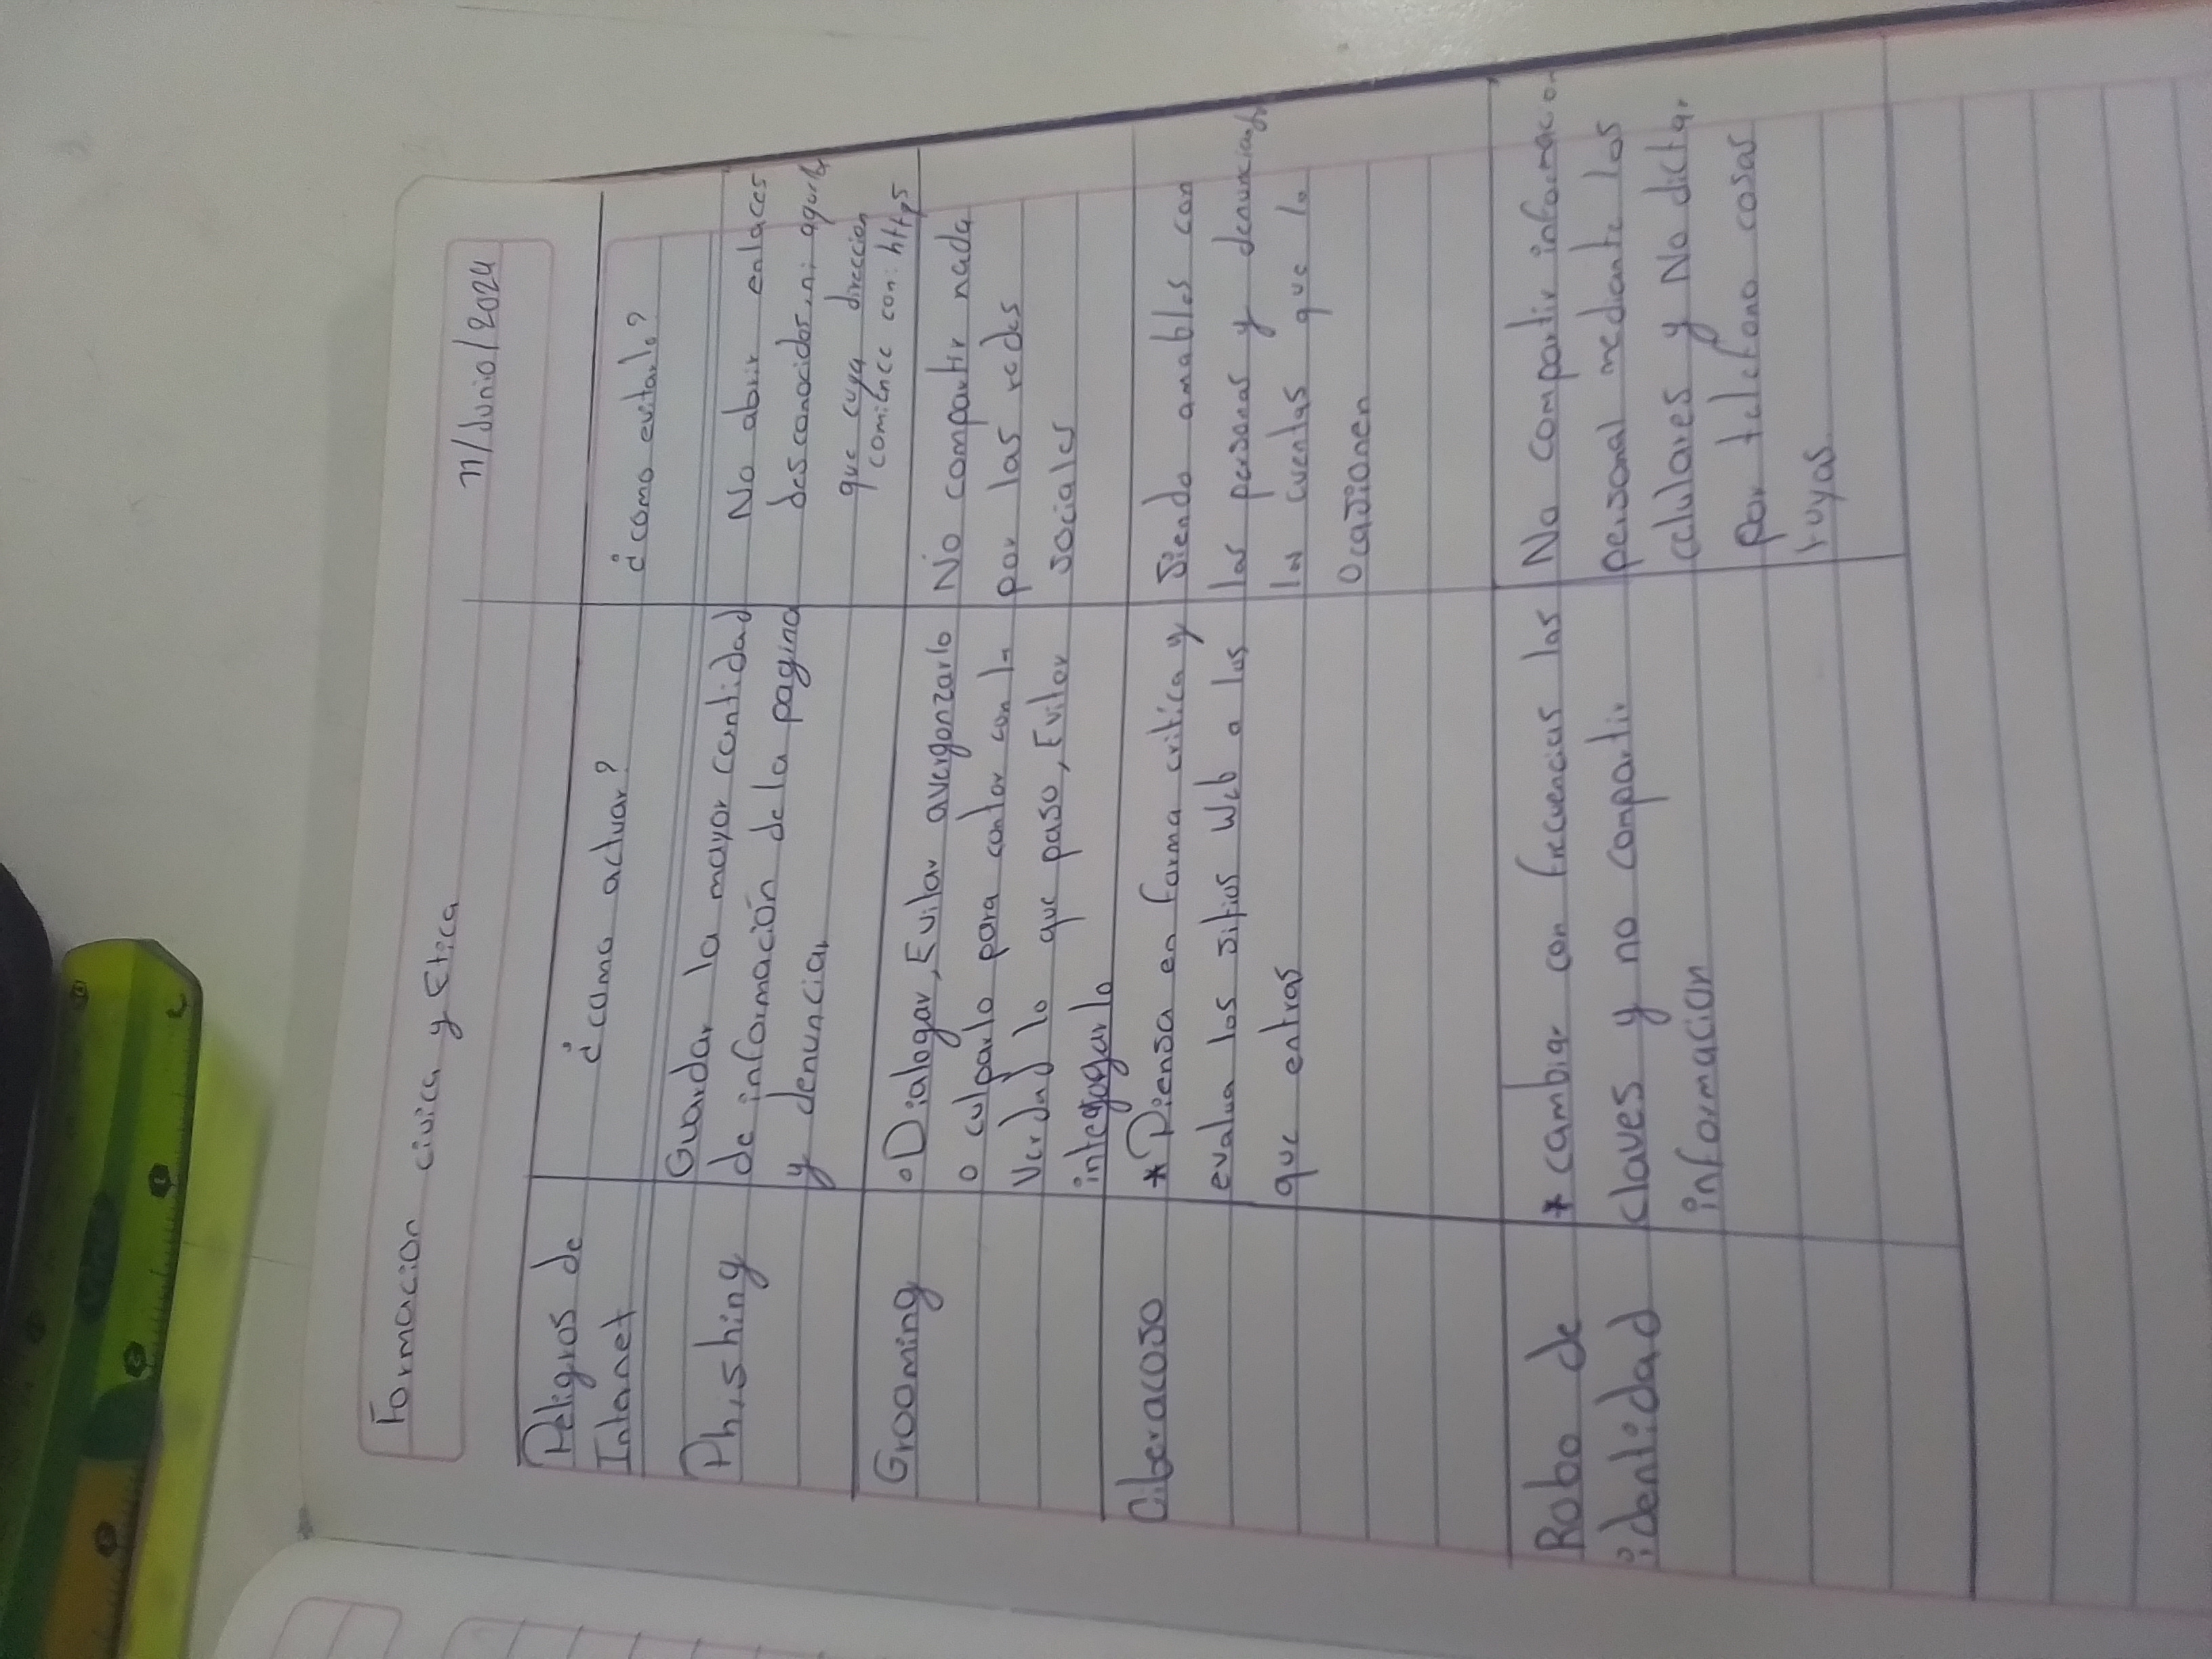 Formacion civica y Etica
11/Junio/2024
Peligros de
Intenet
¿como actuar?
¿como evitarlo?
Phishing
Guardar la mayor cantidad
de información de la pagina
y denunciar
No abrir enlaces
desconocidos, ni
que cuya direccion
comience con: https
Grooming
°Dialogar, Evitar avergonzarlo
o culparlo para contar con la
Verdad lo que paso, Evitar
No compartir nada
por las redes
sociales
Ciberacoso
*Piensa en forma critica y
evalua los sitios Web a los
que entras
Siendo amables con
las personas y denunciando
las cuentas que lo
Ocasionen
Robo de
identidad
* cambiar con frecuencias las
claves y no compartir
informacion
No compartir informacion
personal mediante los
celulares y No dictar
por telefono cosas
tuyas